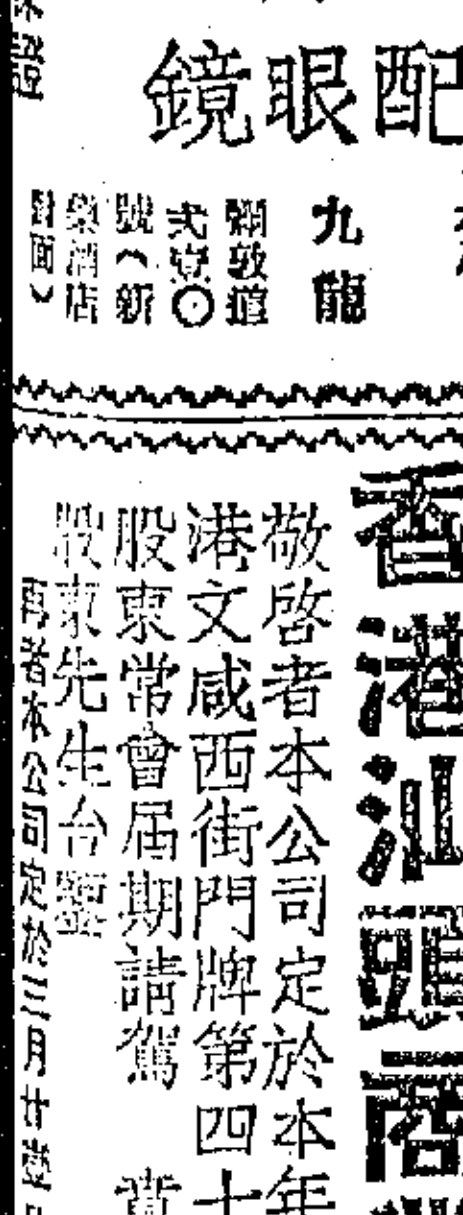 配眼鏡
九龍
彌敦道
弍壹〇
號（新
樂酒店
對面）
香港汕頭商
敬啓者本公司定於本年
港文咸西街門牌第四十
股東常會屆期請駕
股東先生台鑒
再者本公司定於三月廿壹